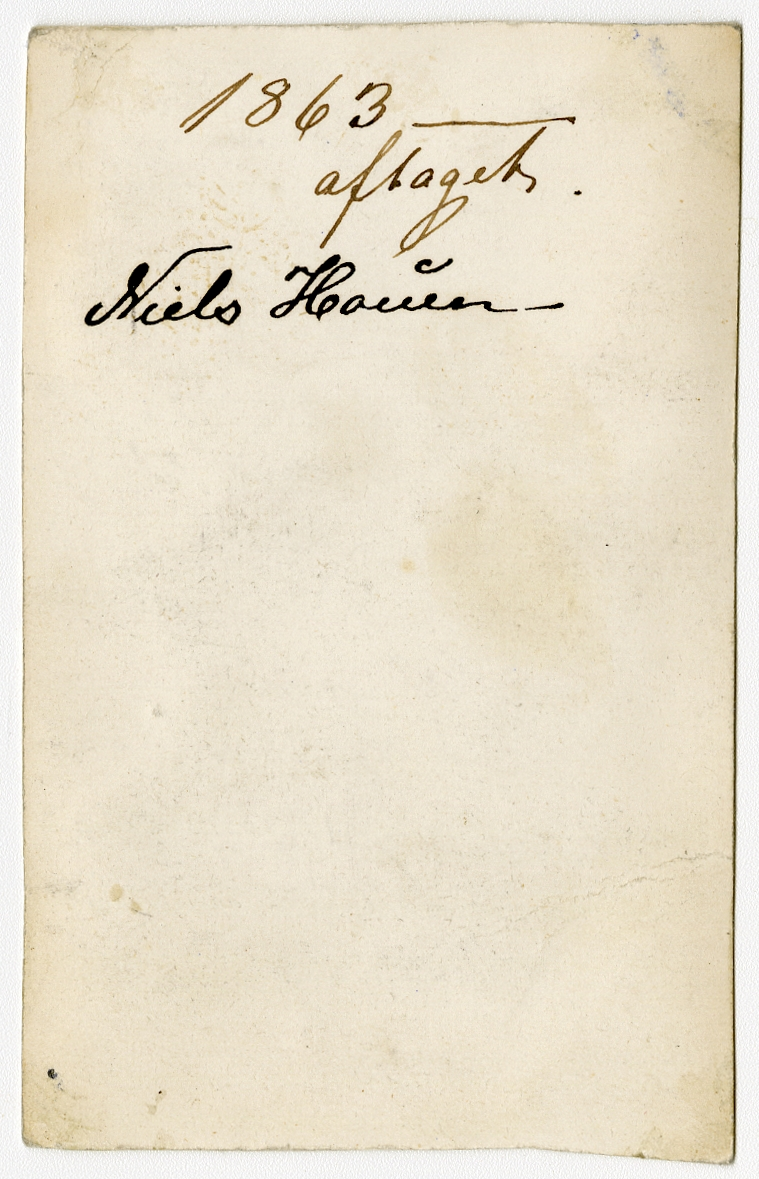 1863 —
aftaget.
Niels Hauen —